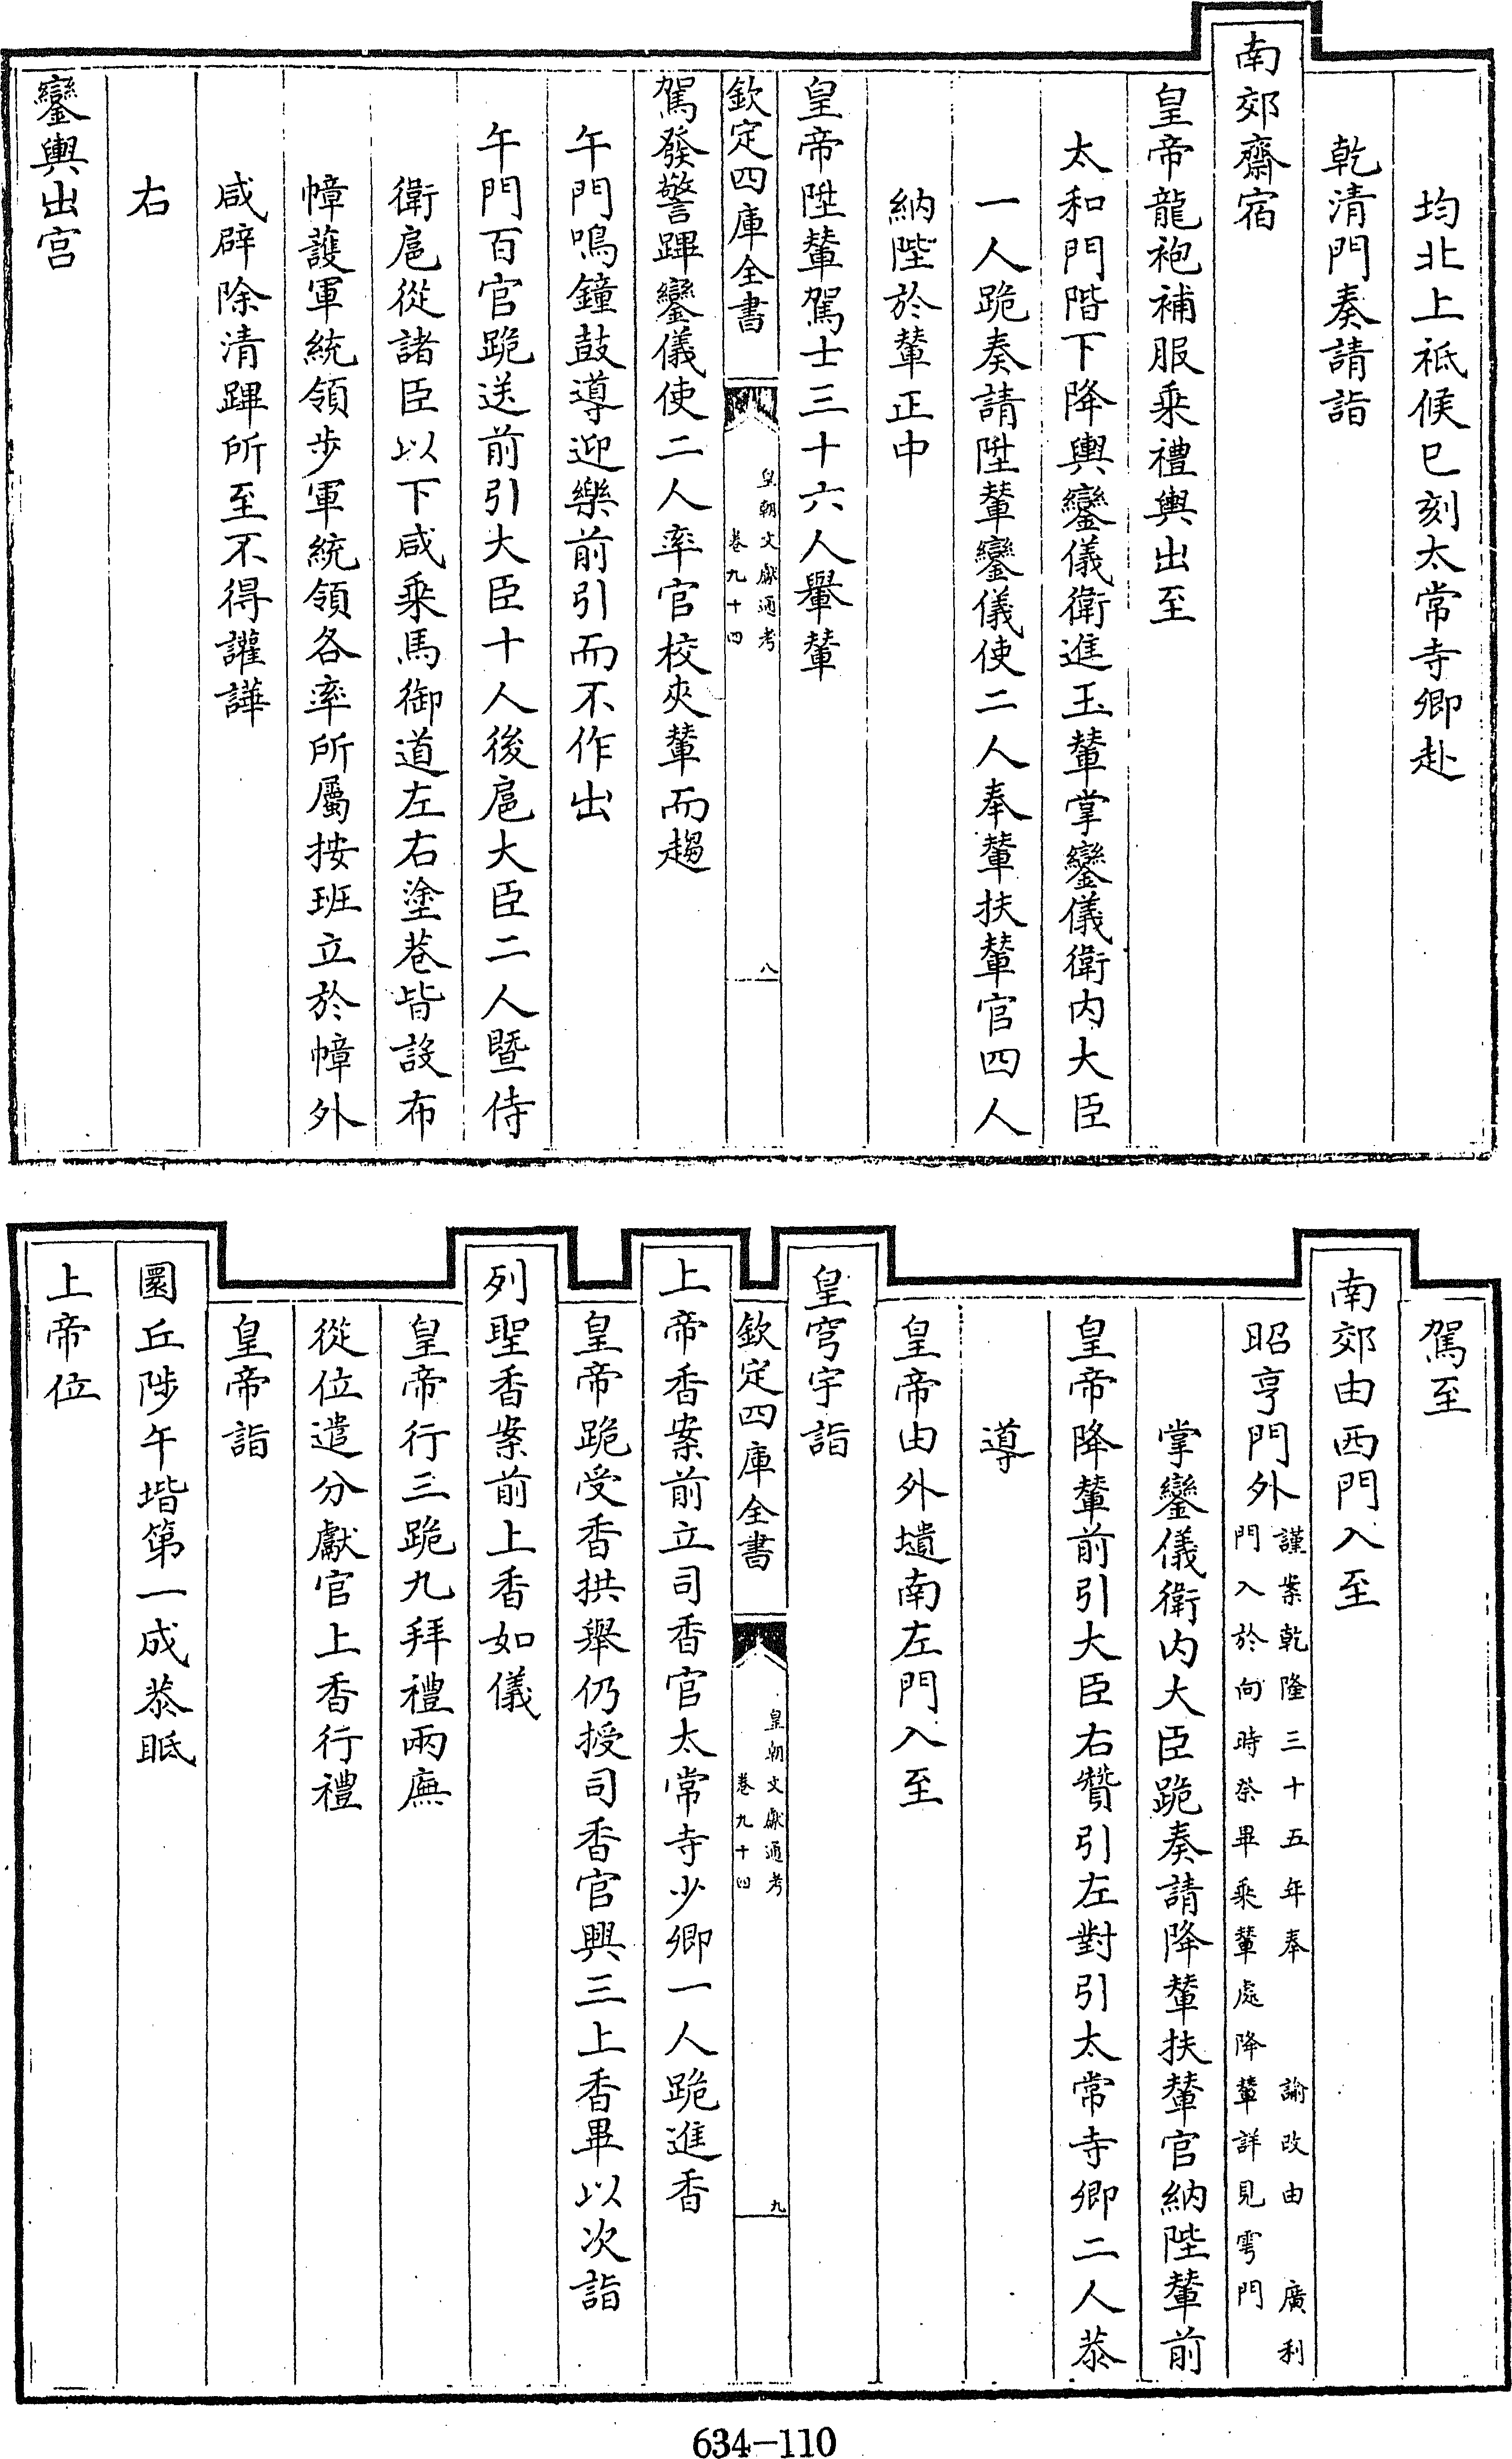 均北上祗候巳刻太常寺卿赴
乾清門奏請詣
南郊齋宿
皇帝龍袍補服乘禮輿出至
太和門階下降輿鑾儀衛進玉輦掌鑾儀衛内大臣
一人跪奏請陞輦鑾儀使二人奉輦扶輦官四人
納陛於輦正中
皇帝陞輦駕士三十六人轝輦
欽定四庫全書
皇朝文獻通考
卷九十四
八
駕發警蹕鑾儀使二人率官校夾輦而趨
午門鳴鐘鼓導迎樂前引而不作出
午門百官跪送前引大臣十人後扈大臣二人暨侍
衛扈從諸臣以下咸乘馬御道左右塗巷皆設布
幛護軍統領步軍統領各率所屬按班立於幛外
咸辟除清蹕所至不得讙譁
右
鑾輿出宫
駕至
南郊由西門入至
昭亨門外
謹案乾隆三十五年奉 諭改由 廣利
門入於向時祭畢乘輦處降輦詳見雩門
掌鑾儀衛内大臣跪奏請降輦扶輦官納陛輦前
皇帝降輦前引大臣右贊引左對引太常寺卿二人恭
導
皇帝由外壝南左門入至
皇穹宇詣
欽定四庫全書
皇朝文獻通考
卷九十四
九
上帝香案前立司香官太常寺少卿一人跪進香
皇帝跪受香拱舉仍授司香官興三上香畢以次詣
列聖香案前上香如儀
皇帝行三跪九拜禮兩廡
從位遣分獻官上香行禮
皇帝詣
圜丘陟午堦第一成恭眡
上帝位
634-110